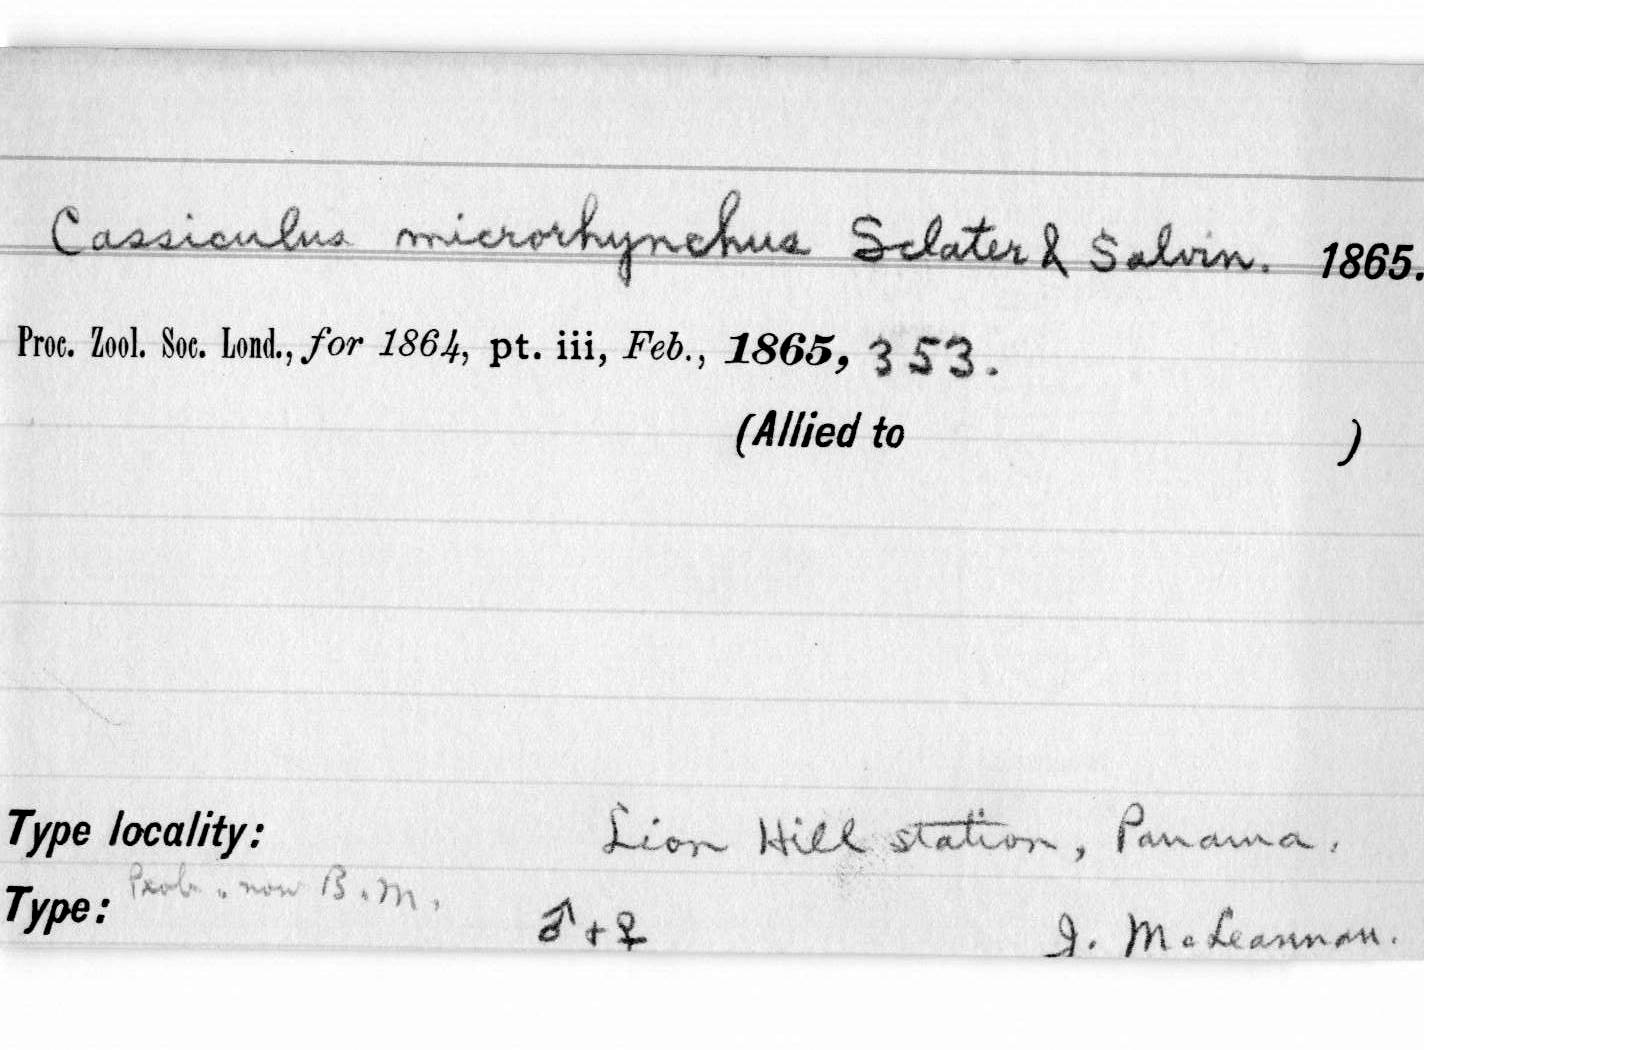 Cassiculus microrhynchus Sclater & Salvin. 1865.
Proc. Zool. Soc. Lond., for 1864, pt. iii, Feb., 1865, 353.
(Allied to )
Type locality: Lion Hill station, Panama.
Prob. now B.M.
Type: ♂ + ♀ J. McLeannan.